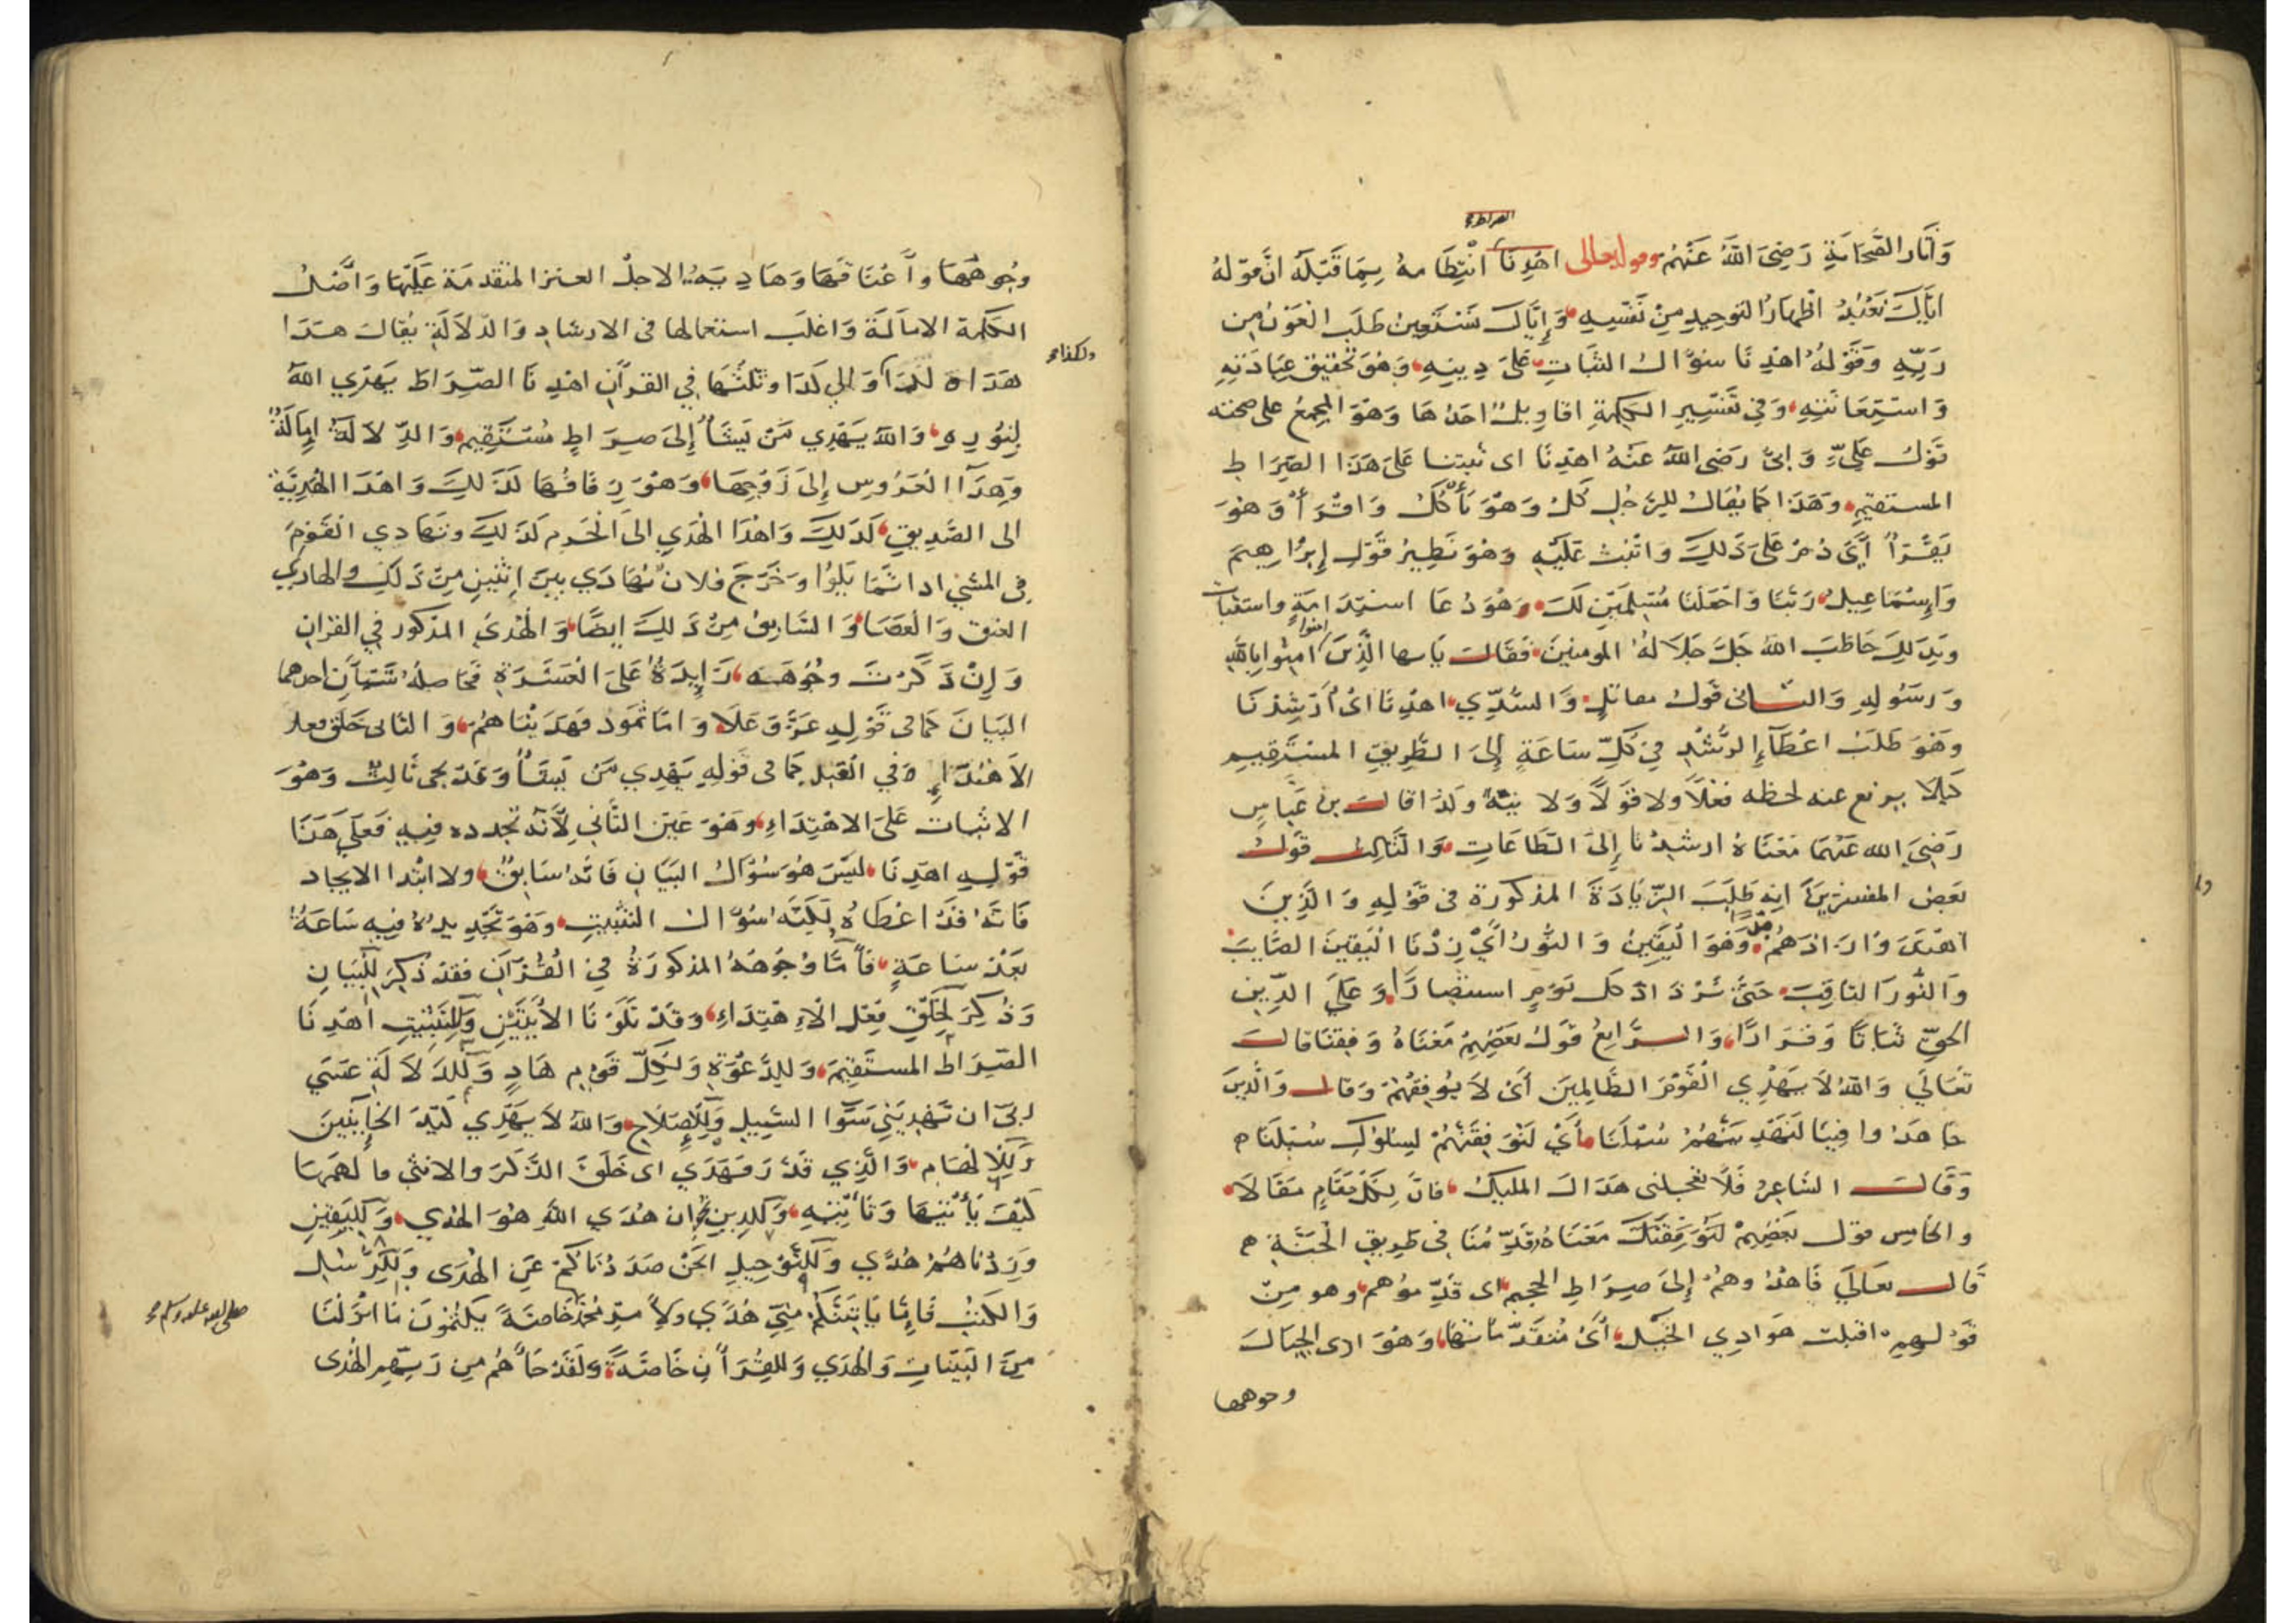 الصراط
وَآثار الصَّحَابَةِ رَضِيَ اللَّهُ عَنْهُمْ وقوله تعالى اهْدِنَا انْتِظَامهُ بِمَا قَبْلَهُ انَّ قوْلهُ
ايَّاكَ نَعْبُدُ اظْهَارُ التوحِيدِ مِنْ نَفْسِهِ وَإِيَّاكَ نَسْتَعِينُ طَلَب العَوْنِ مِن
رَبِّهِ وَقَوْلهُ اهْدِنَا سؤَالُ الثَّبَاتِ عَلَى دِينِهِ وَهُوَ تحْقِيق عِبَادَتِهِ
وَاسْتِعَانَتِهِ وَفي تَفْسِيرِ الكلِمَةِ اقاوِيلُ احَدُهَا وَهْوَ المجْمعُ على صحته
قَوْلُ عَلِيٍّ وَابَيٍّ رَضى اللَّهُ عَنْهُ اهْدِنَا اى ثَبِتنا عَلَى هَذَا الصِّرَاطِ
المستقيمِ وَهَذَا كَمَا يُقَالُ للرَّجُلِ كُلْ وَهْوَ يَأْكُلُ وَاقْرَأْ وَهُوَ
يَقْرَأُ أيْ دُمْ عَلَى ذَلِكَ وَاثْبُتْ عَلَيْهِ وَهُوَ نَظِيرُ قَوْلِ إِبْرَاهِيمَ
وَإِسْمَاعِيلَ رَبَّنَا وَاجْعَلْنَا مُسْلِمَيْنِ لَكَ وَهُوَ دُعَا اسْتِدَامَةٍ واستثبات
وَبِذَلِكَ خَاطَبَ اللهُ جَلَّ جَلَالهُ المومنِينَ فَقَالَ يَا ايها الَّذِينَ امنوا امِنُوا بِاللهِ
وَرَسُولِهِ وَالثَّانى قَولُ مقاتلٍ وَالسُّدِّي اهْدِنَا اىْ أَرْشِدْنَا
وَهْوَ طَلَبُ اعْطَآءِ الرُّشْدِ فِي كُلِّ سَاعَةٍ إِلَى الطَّرِيقِ المسْتَقِيمِ
كَيْلا يرتفع عنه لحظه فعْلًا ولا قَوْلًا وَلَا نِيَّةً وَلَذا قالَ بن عَبَّاسٍ
رَضِيَ الله عَنْهُمَا مَعْنَاهُ ارشِدْنَا إِلَى الطَّاعَاتِ وَالثَّالِثُ قَوْلُ
بَعْضِ المفسرينَ انه طَلَبَ الزِّيَادَةَ المذكورَةَ في قَوْلِهِ وَالَّذِينَ
اهْتَدَوْا زَادَهُمْ هدًى وَهْوَ الْيَقِينُ وَالنُّورُ أَيْ زِدْنَا الْيَقِينَ الصَّايِبَ
وَالنُّورَ الثاقِبَ حَتَّى نَزْدَادَ كل يَوْمٍ استبْصَارًا وَعَلَى الدِّينِ
الحَقِّ ثَبَاتًا وَقَرَارًا وَالرَّابِعُ قَوْلُ بَعْضِهِمْ مَعْنَاهُ وَفِّقْنَا قالَ
تَعَالَى وَاللهُ لَا يَهْدِي الْقَوْمَ الظَّالِمِينَ أَىْ لَا يُوَفِّقُهُمْ وَقال وَالَّذِينَ
جَاهَدُوا فِينَا لَنَهْدِيَنَّهُمْ سُبُلَنَا أَيْ لَنُوَفِّقَنَّهُمْ لِسُلُوكِ سُبُلِنَا
وَقَالَ الشَّاعِرُ فَلَا تعجِلنى هَدَاكَ المليكُ فانَّ لِكُلِّ مَقَامٍ مَقَالَا
والخَامِس قول بَعْضِهِمْ لَنُوَفِّقَنَّكَ مَعْنَاهُ قَدِّمْنَا في طَرِيقِ الْجَنَّةِ
قَال تعَالَى فَاهْدُوهُمْ إِلَى صِرَاطِ الجحِيمِ اى قَدِّمُوْهم وهو مِنْ
قَوْلهِمِ اقبلت هَوَادِي الخَيْلِ أَىْ مُتَقَدِّمَاتهَا وَهْوَادى الجبَال
وجوهها
وُجُوهُهَا وأَعْنَاقُهَا وَهَادِيَةُ الاجل العنز المتقدمَة عَلَيْهَا وَأَصْلُ
الكَلِمَة الامَالَة وَاغلَب استعمالها فى الارشادِ وَالدَّلَالَةِ يُقالُ هَدَا
ولكذا
هَدَاهُ لكذا وَالي كَذَا وثلثُهَا فِي القرآنِ اهْدِنَا الصِّرَاطَ يَهْدِي اللهُ
لِنُورِهِ وَاللهُ يَهْدِي مَنْ يَشَاُ إِلَى صِرَاطٍ مُسْتَقِيمٍ وَالدِّلَالَةُ امَالَةٌ
وَهِدَآ الْعَرُوسِ إِلَى زَوْجِهَا وَهُوَ زِفَافُهَا كَذَلِكَ وَاهْدَا الْهَدِيَّة
الى الصَّدِيقِ كَذَلِكَ وَاهْدَا الْهَدِي الى الْحَرَمِ كَذَلِكَ وتَهَادِي القَوْمِ
فى المشي اذا تَمَايَلُوا وَخَرَجَ فلان يُهَادَي بينَ اثْنَيْنِ مِنْ ذَلِكَ والهادِي
العنق وَالْعَصَا وَالسَّابِقُ مِنْ ذَلِكَ ايضًا وَالْهُدَى المذكور في القرانِ
وَإِنْ ذَكَرْتَ وُجُوهَهُ زَايِدَةً عَلَى الْعَشَرَةِ فَحَاصِلُهُ شَيْئَانِ احدهما
البَيَانَ كَمَا فى قَوْلِهِ عَزَّ وَعَلَا وَامَّا ثَمُود فهَدَيْنَاهُمْ وَالثَانى خَلق فعل
الاهْتِدَاءِ في الْعَبْدِ كَمَا فى قَوْلِهِ يَهْدِي مَنْ يَشَاُ وَقَدْ يجى ثَالِث وَهْوَ
الاثبات عَلَى الاهْتِدَاءِ وَهُوَ عَيْن الثَّانِي لِأَنَّهُ تجدده فِيهِ فَعَلَى هَذَا
قَوْلِهِ اهْدِنَا لَيْسَ هُوَ سُؤَالُ البَيَانِ فَانَّهُ سَابِقٌ ولا ابْتدا الايجاد
فَانَّهُ قَدْ اعْطَاهُ لَكِنَّهُ سُؤَالُ التثبِيتِ وَهُوَ تجْدِيدُهُ فِيهِ سَاعَةً
بَعْدَ سَاعَةٍ فَأَمَّا وُجُوهُهُ المذكورَةُ فِي القُرْآنِ فقدْ ذُكِرَ لِلْبَيَانِ
وَذُكِرَ لخَلْقِ فِعْلِ الْاهْتِدَاءِ وَقَدْ تَلَوْنَا الأَيَتَيْنِ وَللتثْبِيتِ اهْدِنَا
الصِّرَاطَ المسْتَقِيمَ وَلِلدَّعْوَةِ وَلِكُلِّ قَوْمٍ هَادٍ وَلِلدَّلَالَةِ عَسَي
ربى ان يَهْدِيَنِي سَوَا السَّبِيلِ وَلِلْإصْلَاحِ وَاللهُ لَا يَهْدِي كَيْدَ الخَاينِينَ
وَلِلْالْهَامِ وَالَّذِي قَدَّرَ فَهَدَي اى خَلَقَ الذَّكَرَ والانثى والْهمَهَا
كَيْفَ يَأْتيهَا وَتَأْتِيهِ وَلِلدِينِ ان هُدَي اللهِ هُوَ الهُدي وَلِلْيَقِينِ
وَزِدْنَاهُمْ هُدًي وَلِلتَّوْحِيدِ انَحْنُ صَدَدْنَاكُمْ عَنِ الْهُدَى وَلِلرَّسُلِ
وَالكتبْ فَإِمَّا يَاتِيَنَّكُمْ مِنِّي هُدًي وَلامر مُحَمَّد خَاصَّةً يَكْتُمُونَ مَا انْزَلْنَا
صلى الله عليه وسلم
مِنَ البَيِّنَاتِ وَالْهُدَي وَللقُرْآنِ خَاصَّةً وَلَقَدْ جَاَهُمْ مِن رَبِّهِم الْهُدى